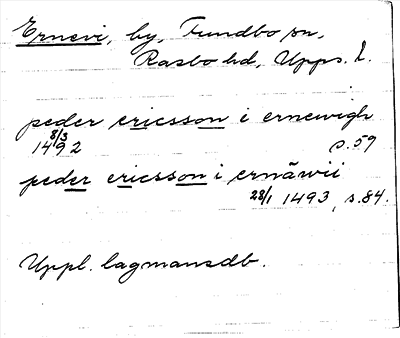 Ernevi, by, Funbo sn,
Rasbo hd, Upps. l.
peder ericsson i ernewigh
8/3 1492 s. 59
peder ericsson i ernäwii
28/1 1493, s. 84.
Uppl. lagmansdb.